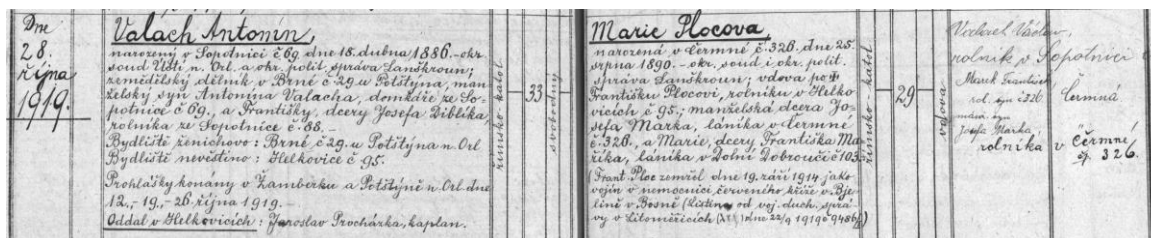 Dne
28.
října
1919.
Valach Antonín,
narozený v Sopotnici č 69 dne 18. dubna 1886.- okr.
soud Ústí n. Orl. a okr. polit. správa Lanškroun;
zemědělský dělník v Brné č 29 u Potštýna, man-
želský syn Antonína Valacha, domkáře ze So-
potnice č 69., a Františky, dcery Josefa Diblíka,
rolníka ze Sopotnice č 88.-
Bydliště ženichovo: Brné č 29. u Potštýna n. Orl
Bydliště nevěstino: Helkovice č 95.
Prohlášky konány v Žamberku a Potštýně n. Orl dne
12.,- 19.,- 26. října 1919.-
Oddal v Helkovicích: Jaroslav Procházka, kaplan.
římsko-katol
33
svobodný
Marie Plocova
narozená v Čermné č 326. dne 25.
srpna 1890.- okr. soud i okr. polit.
správa Lanškroun; vdova po
Františku Plocovi, rolníku v Helko
vicích č 95.; manželská dcera Jo-
sefa Marka, láníka v Čermné
č 326., a Marie, dcery Františka Ma
říka, láníka v Dolní Dobrouči č 103.
(Frant Ploc zemřel dne 19. září 1914 jako
vojín v nemocnici červeného kříže v Bje-
líně v Bosně (Listina od voj. duch. sprá
vy v Litoměřicích dne 22/9 1919 č 9486
římsko-katol
29
vdova
Václav,
rolník v Sopotnici
Marek František
rol. syn č 326 Čermná
Josefa Marka,
rolníka v Čermné
čp. 326.